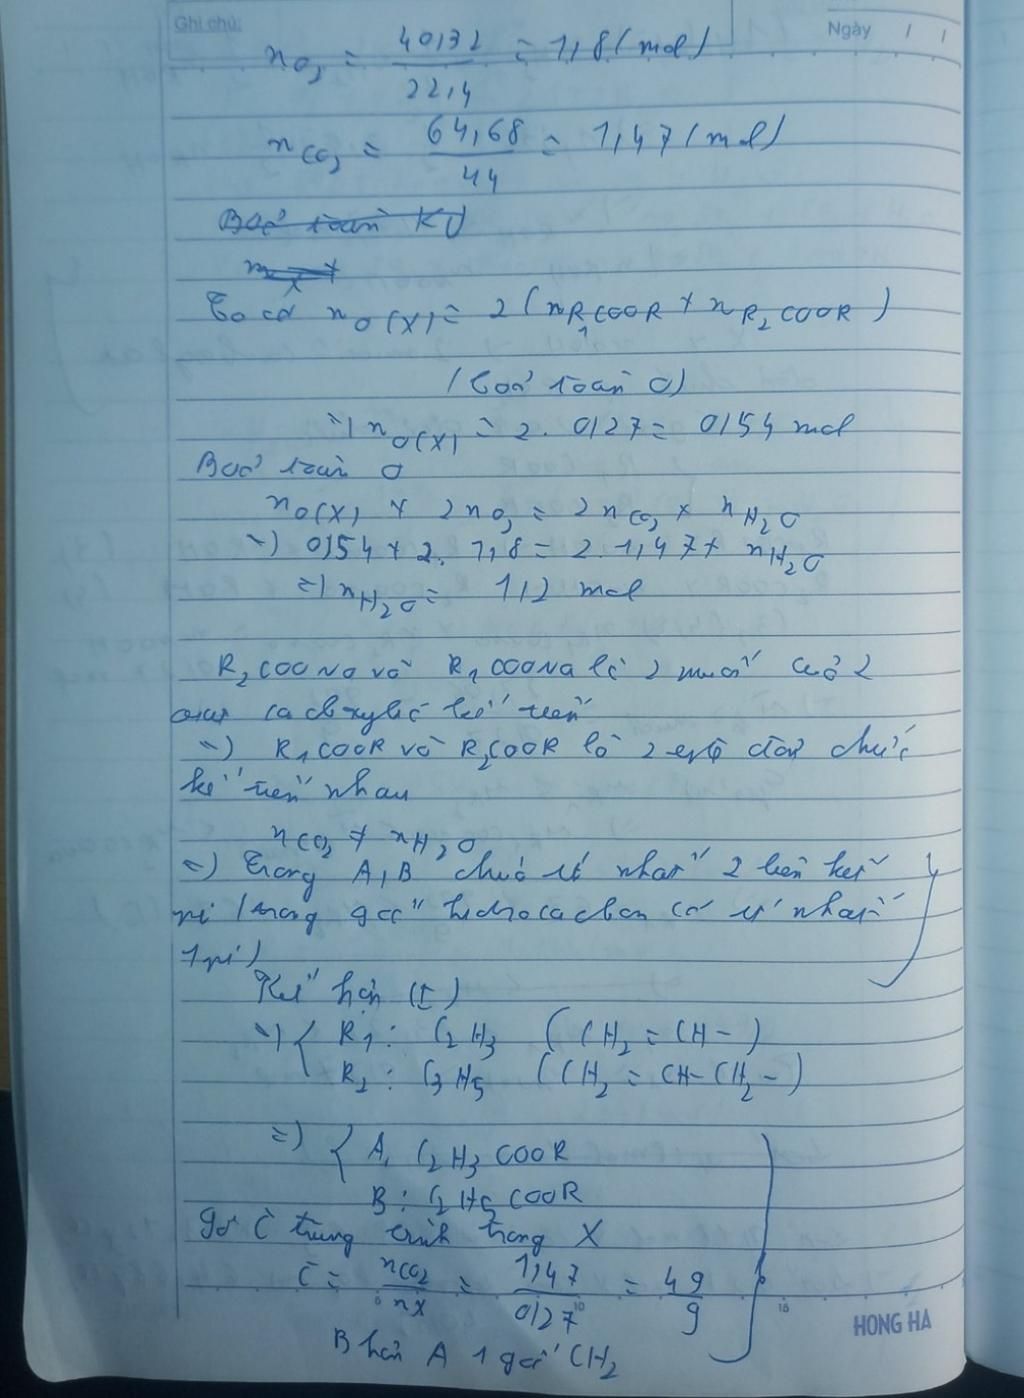 Ghi chú:
Ngày / /
nO2 = 40,32 / 22,4 = 1,8 (mol)
nCO2 = 64,68 / 44 = 1,47 (mol)
Bảo toàn KL
mX +
Ta có nO(X) = 2 (nR1COOR + nR2COOR)
(bảo toàn O)
=> nO(X) = 2. 0,27 = 0,54 mol
Bảo toàn O
nO(X) + 2nO2 = 2nCO2 + nH2O
=> 0,54 + 2. 1,8 = 2. 1,47 + nH2O
=> nH2O = 1,2 mol
R2COONa và R1COONa là 2 muối của 2
axit cacboxylic kế tiếp
=> R1COOR và R2COOR là 2 este đơn chức
kế tiếp nhau
nCO2 ≠ nH2O
=> Trong A, B chứa ít nhất 2 liên kết
pi (trong gốc hidrocacbon có ít nhất
1 pi)
Kết hợp (I)
=> { R1: C2H3 (CH2=CH-)
R2: C3H5 (CH2=CH-CH2-)
=> { A: C2H3COOR
B: C2H5COOR
gọi C trung bình trong X
C̄ = nCO2 / nX = 1,47 / 0,27 = 49 / 9
B hơn A 1 gốc CH2
5 10 15
HONG HA